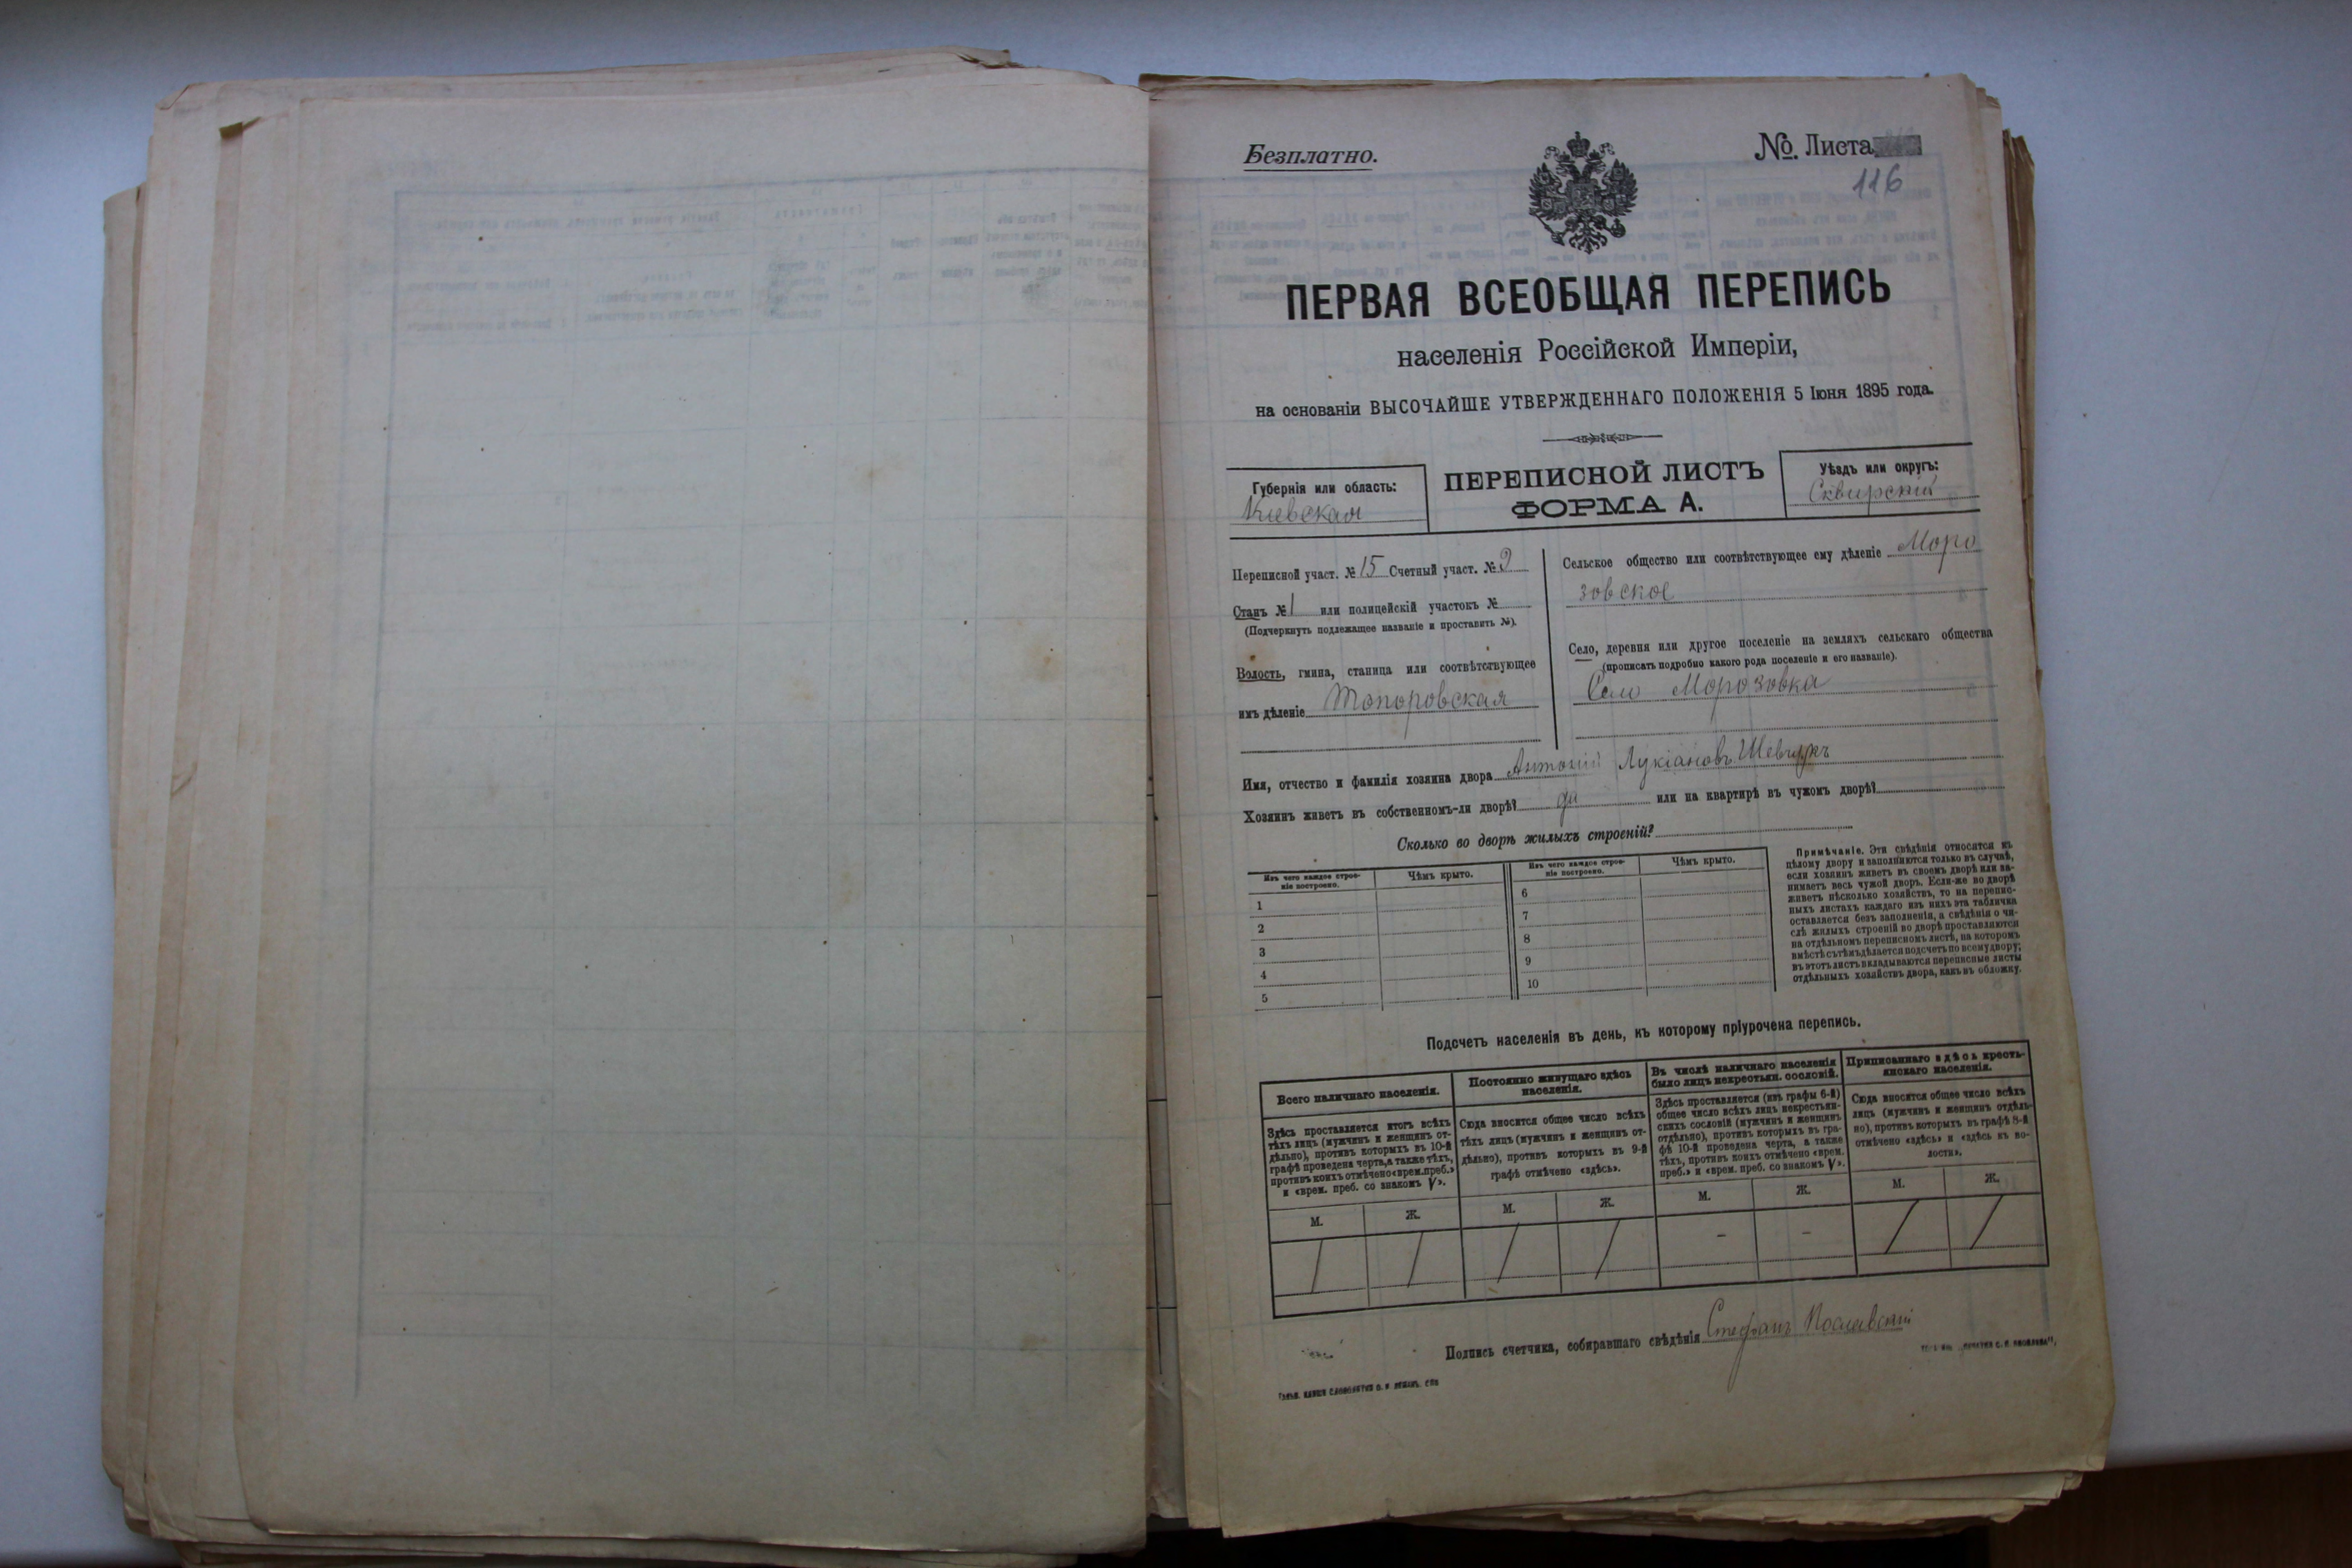 Безплатно.
№. Листа
116
ПЕРВАЯ ВСЕОБЩАЯ ПЕРЕПИСЬ
населенія Россійской Имперіи,
на основаніи ВЫСОЧАЙШЕ УТВЕРЖДЕННАГО ПОЛОЖЕНІЯ 5 Іюня 1895 года.
Губернія или область:
Кіевская
ПЕРЕПИСНОЙ ЛИСТЪ
ФОРМА А.
Уѣздъ или округъ:
Сквирскій
Переписной участ. № 15 Счетный участ. № 2
Станъ № 1 или полицейскій участокъ №
(Подчеркнуть подлежащее названіе и проставить №).
Волость, гмина, станица или соотвѣтствующее
имъ дѣленіе Топоровская
Сельское общество или соотвѣтствующее ему дѣленіе Моро
зовское
Село, деревня или другое поселеніе на земляхъ сельскаго общества
(прописать подробно какого рода поселеніе и его названіе).
Село Морозовка
Имя, отчество и фамилія хозяина двора Антоній Лукіановъ Шевчукъ
Хозяинъ живетъ въ собственномъ-ли дворѣ? да или на квартирѣ въ чужомъ дворѣ?
Сколько во дворѣ жилыхъ строеній?
Изъ чего каждое строе-
ніе построено.
Чѣмъ крыто.
1
2
3
4
5
Изъ чего каждое строе-
ніе построено.
Чѣмъ крыто.
6
7
8
9
10
Примѣчаніе. Эти свѣдѣнія относятся къ
цѣлому двору и заполняются только въ случаѣ,
если хозяинъ живетъ въ своемъ дворѣ или за-
нимаетъ весь чужой дворъ. Если-же во дворѣ
живетъ нѣсколько хозяйствъ, то на перепис-
ныхъ листахъ каждаго изъ нихъ эта табличка
оставляется безъ заполненія, а свѣдѣнія о чи-
слѣ жилыхъ строеній во дворѣ проставляются
на отдѣльномъ переписномъ листѣ, на которомъ
вмѣстѣ съ тѣмъ дѣлается подсчетъ по всему двору;
въ этотъ листъ вкладываются переписные листы
отдѣльныхъ хозяйствъ двора, какъ въ обложку.
Подсчетъ населенія въ день, къ которому пріурочена перепись.
Всего наличнаго населенія.
Здѣсь проставляется итогъ всѣхъ
тѣхъ лицъ (мужчинъ и женщинъ от-
дѣльно), противъ которыхъ въ 10-й
графѣ проведена черта, а также тѣхъ,
противъ коихъ отмѣчено «врем. преб.»
и «врем. преб. со знакомъ V».
М.
Ж.
Постоянно живущаго здѣсь
населенія.
Сюда вносится общее число всѣхъ
тѣхъ лицъ (мужчинъ и женщинъ от-
дѣльно), противъ которыхъ въ 9-й
графѣ отмѣчено «здѣсь».
М.
Ж.
Въ числѣ наличнаго населенія
было лицъ некрестьян. сословій.
Здѣсь проставляется (изъ графы 6-й)
общее число всѣхъ лицъ некрестьян-
скихъ сословій (мужчинъ и женщинъ
отдѣльно), противъ которыхъ въ гра-
фѣ 10-й проведена черта, а также
тѣхъ, противъ коихъ отмѣчено «врем.
преб.» и «врем. преб. со знакомъ V».
М.
Ж.
Приписаннаго здѣсь кресть-
янскаго населенія.
Сюда вносится общее число всѣхъ
лицъ (мужчинъ и женщинъ отдѣль-
но), противъ которыхъ въ графѣ 8-й
отмѣчено «здѣсь» и «здѣсь къ во-
лости».
М.
Ж.
/ / / / – – / /
Подпись счетчика, собиравшаго свѣдѣнія Стефанъ